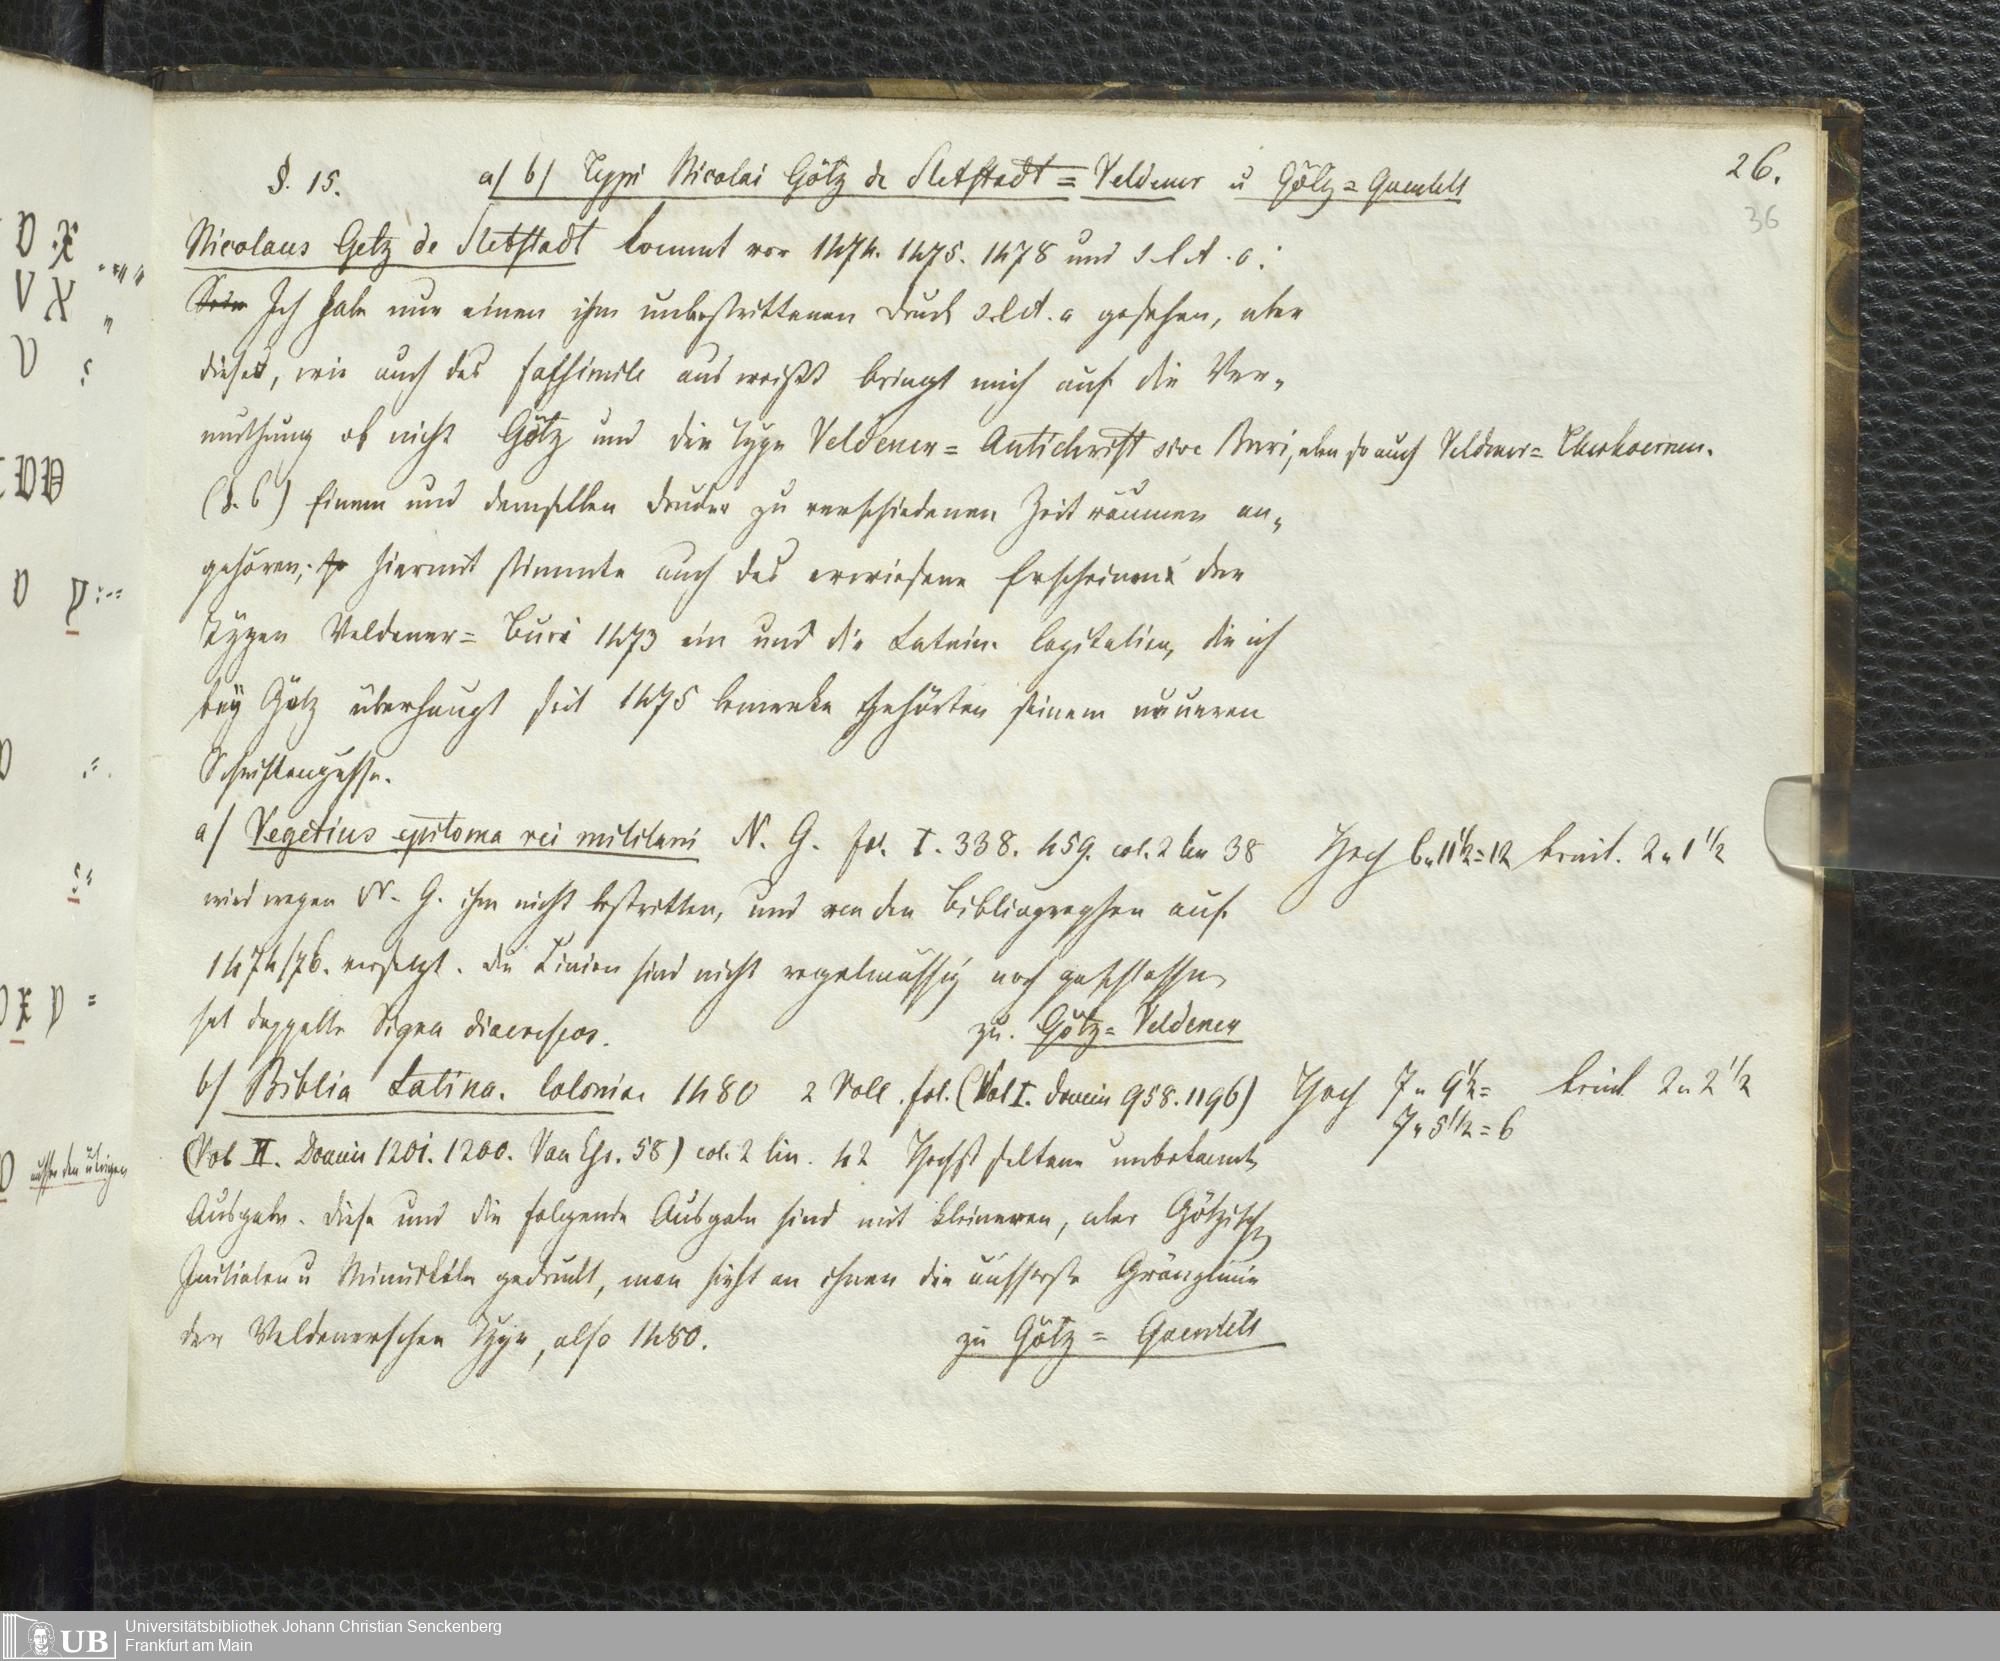 26.
36
§. 15. a/ b/ Typi Nicolai Götz de Sletstadt = Veldener u Götz = Quentels
Nicolaus Getz de Sletstadt kommt vor 1474. 1475. 1478 und s. l. et. a.
Ich habe nur einen ihm unbestrittenen Druck s. l. et. a gesehen, aber
dieses, wie auch das facsimile ausweißt bringt mich auf die Ver=
muthung ob nicht Götz und die Type Veldener = Antichrist sive Buri, eben so auch Veldener = Therhoernen.
(§. 6) Einem und demselben Drucker zu verschiedenen Zeiträumen an=
gehören; hiermit stimmte auch das erwiesene Erscheinen der
Typen Veldener = Buri 1473 ein und die Latein. Capitalien, die ich
bey Götz überhaupt seit 1475 bemerke gehörten seinem neueren
Schriftengusse.
a/ Vegetius epitoma rei militari N. G. fol. I. 338. 459. col. 2 lin 38 Hoch 6 " 11 1/2 = 12 breit. 2 " 1 1/2
wird wegen N. G. ihm nicht bestritten, und von den Bibliographen auf
1474/76. versetzt. die Linien sind nicht regelmässig noch geschlossen
hat doppelte Signa diaereseos. zu. Götz = Veldener
b/ Biblia Latina. Coloniae 1480 2 Voll. fol. (Vol I. Domin 958. 1196) Hoch 7 " 9 1/2 = breit 2 " 2 1/2
7 " 5 1/2 = 6
(Vol II. Domin 1201. 1200. Van Ess. 58) col. 2 lin. 42 Höchst seltene unbekannte
Ausgabe. diese und die folgende Ausgabe sind mit kleineren, aber Götzischen
Initialen u Minuskeln gedruckt, man sieht an ihnen die äusserste Gränzlinie
der Veldenerschen Type, also 1480. zu Götz = Quentels
ausser den übrigen
UB
Universitätsbibliothek Johann Christian Senckenberg
Frankfurt am Main